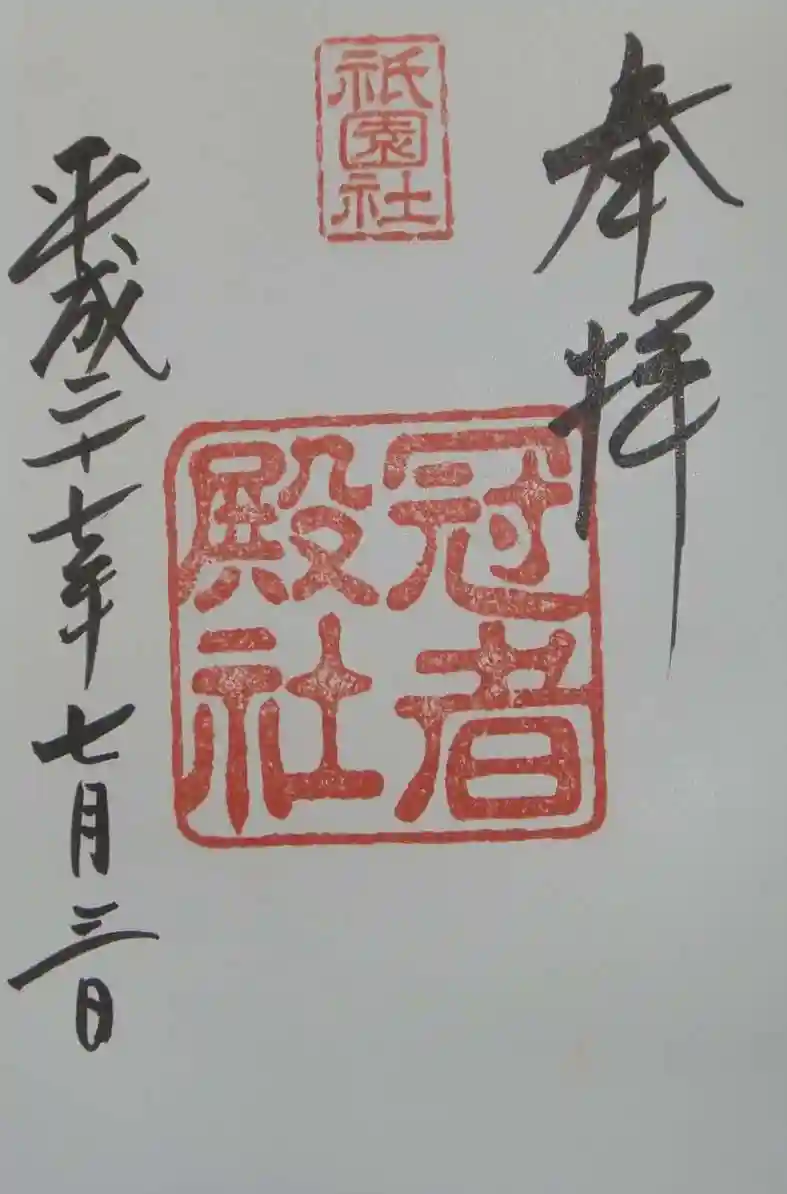 奉拝
祇園社
冠者殿社
平成二十七年七月三日